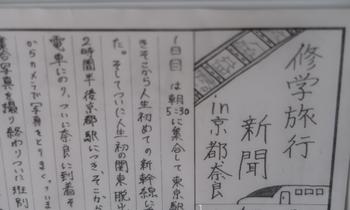 修学旅行
新聞
in京都奈良
1日目は朝5:30に集合して東京駅
きそこから人生初めての新幹線に
た。そしてついに人生初の関東脱出
2時間半後京都駅につき、そこから
電車にのり、ついに奈良に到着
からカメラで写真をとりまくって
集合写真を撮り終わりついた班別